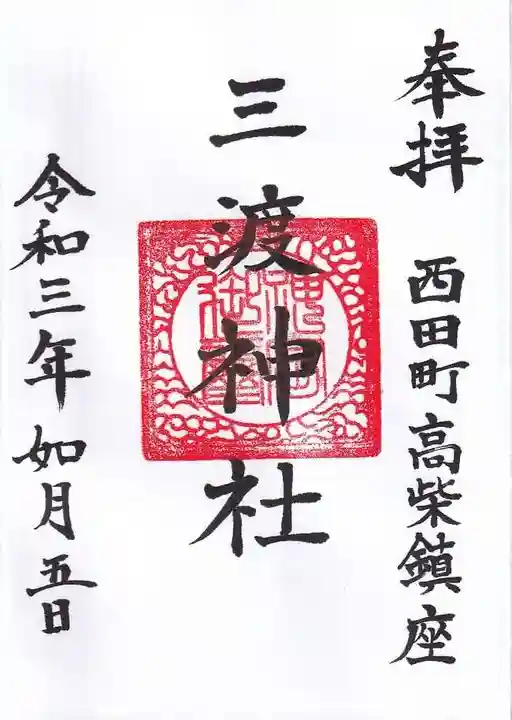 奉拝 西田町高柴鎮座
三渡神社
令和三年如月五日